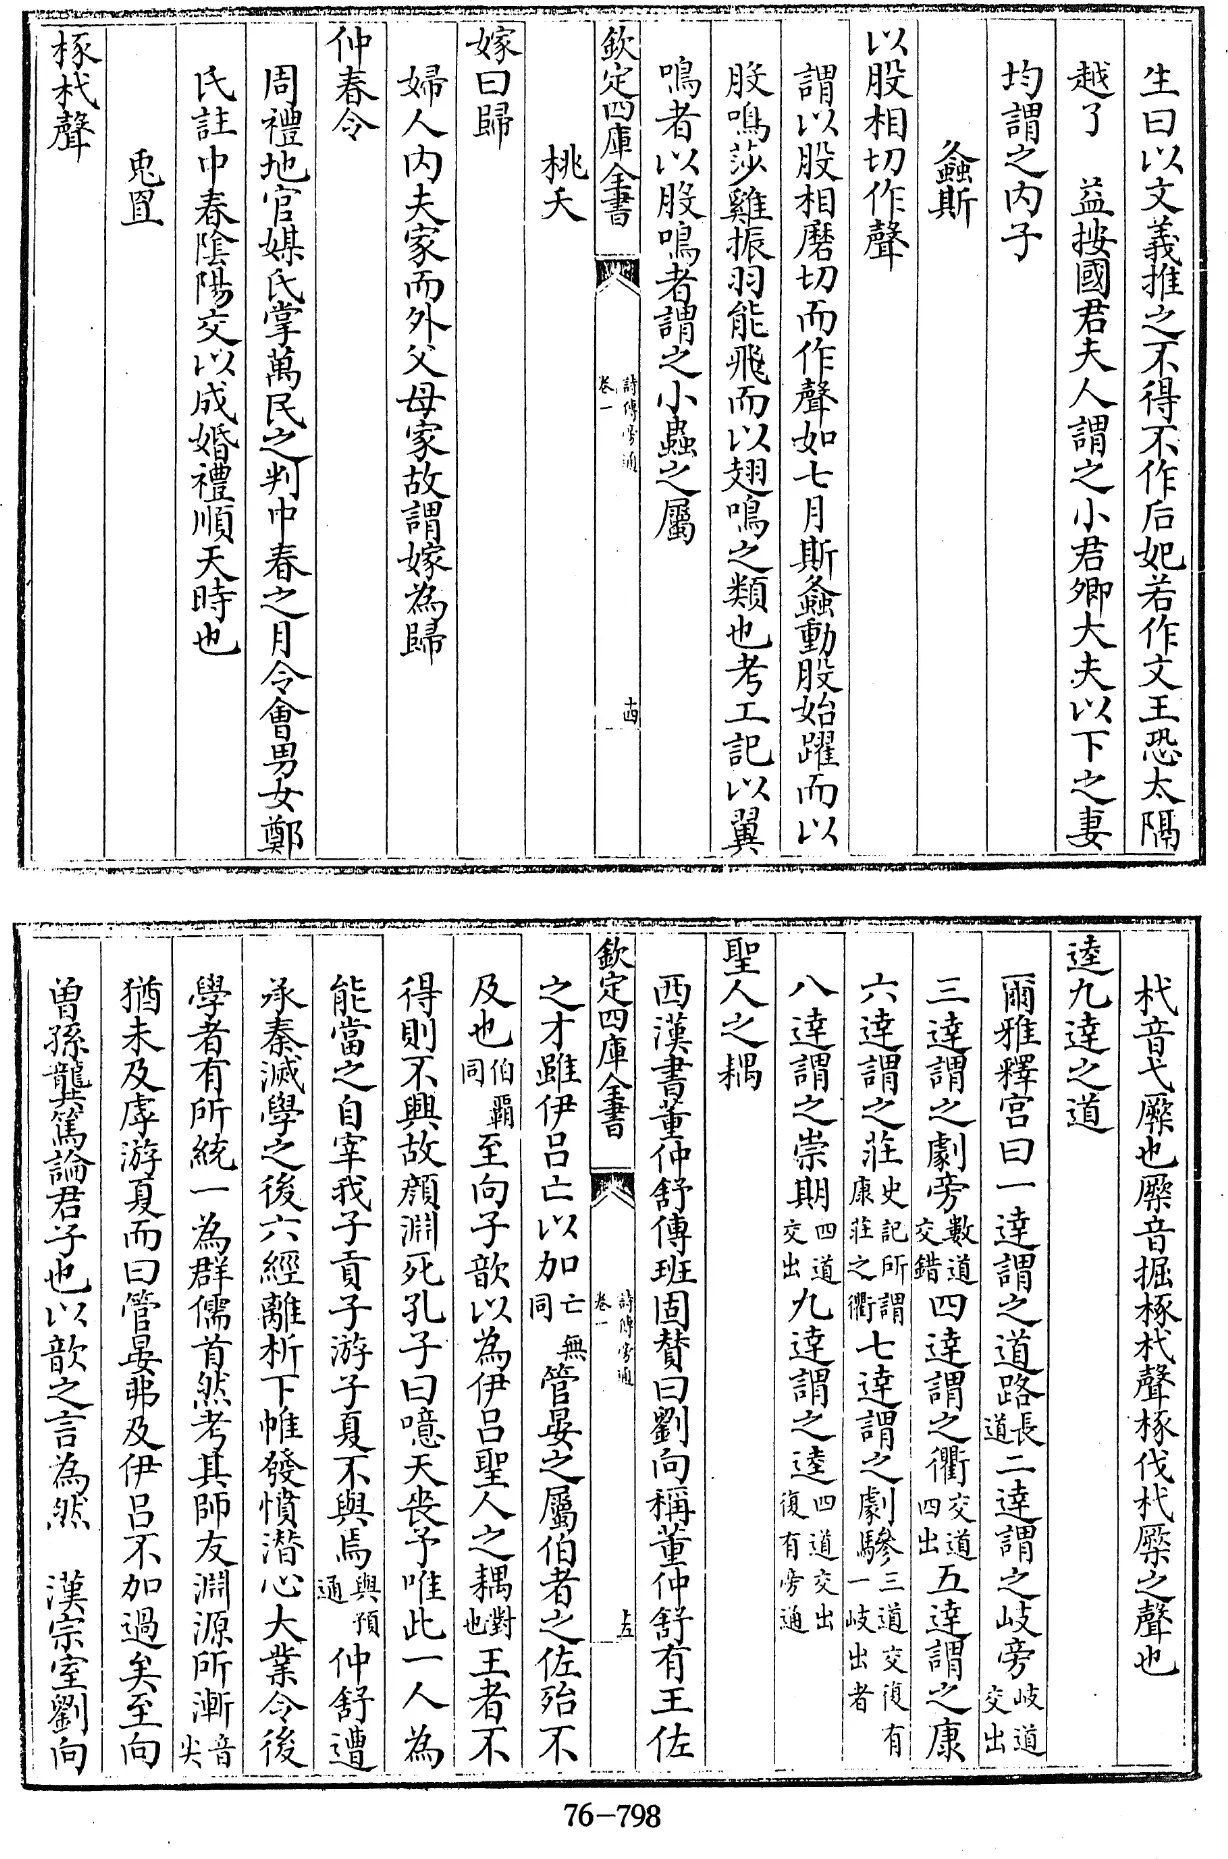 生曰以文義推之不得不作后妃若作文王恐太隔
越了　益按國君夫人謂之小君卿大夫以下之妻
均謂之内子
螽斯
以股相切作聲
謂以股相磨切而作聲如七月斯螽動股始躍而以
股鳴莎雞振羽能飛而以翅鳴之類也考工記以翼
鳴者以股鳴者謂之小蟲之屬
欽定四庫全書
詩傳旁通
卷一
十四
桃夭
嫁曰歸
婦人内夫家而外父母家故謂嫁為歸
仲春令
周禮地官媒氏掌萬民之判中春之月令會男女鄭
氏註中春陰陽交以成婚禮順天時也
兎罝
椓杙聲
杙音弋橜也橜音掘椓杙聲椓伐杙橜之聲也
逵九達之道
爾雅釋宫曰一達謂之道路長道二達謂之岐旁岐道交出
三達謂之劇旁數道交錯四達謂之衢交道四出五達謂之康
六達謂之莊史記所謂康莊之衢七達謂之劇驂三道交復有一岐出者
八達謂之崇期四道交出九達謂之逵四道交出復有旁通
聖人之耦
西漢書董仲舒傳班固贊曰劉向稱董仲舒有王佐
欽定四庫全書
詩傳旁通
卷一
十五
之才雖伊吕亡以加亡無同管晏之屬伯者之佐殆不
及也伯霸同至向子歆以為伊吕聖人之耦對也王者不
得則不興故顔淵死孔子曰噫天喪予唯此一人為
能當之自宰我子貢子游子夏不與焉與預通仲舒遭
承秦滅學之後六經離析下帷發憤潛心大業令後
學者有所統一為群儒首然考其師友淵源所漸音尖
猶未及虖游夏而曰管晏弗及伊吕不加過矣至向
曽孫龔篤論君子也以歆之言為然　漢宗室劉向
76-798